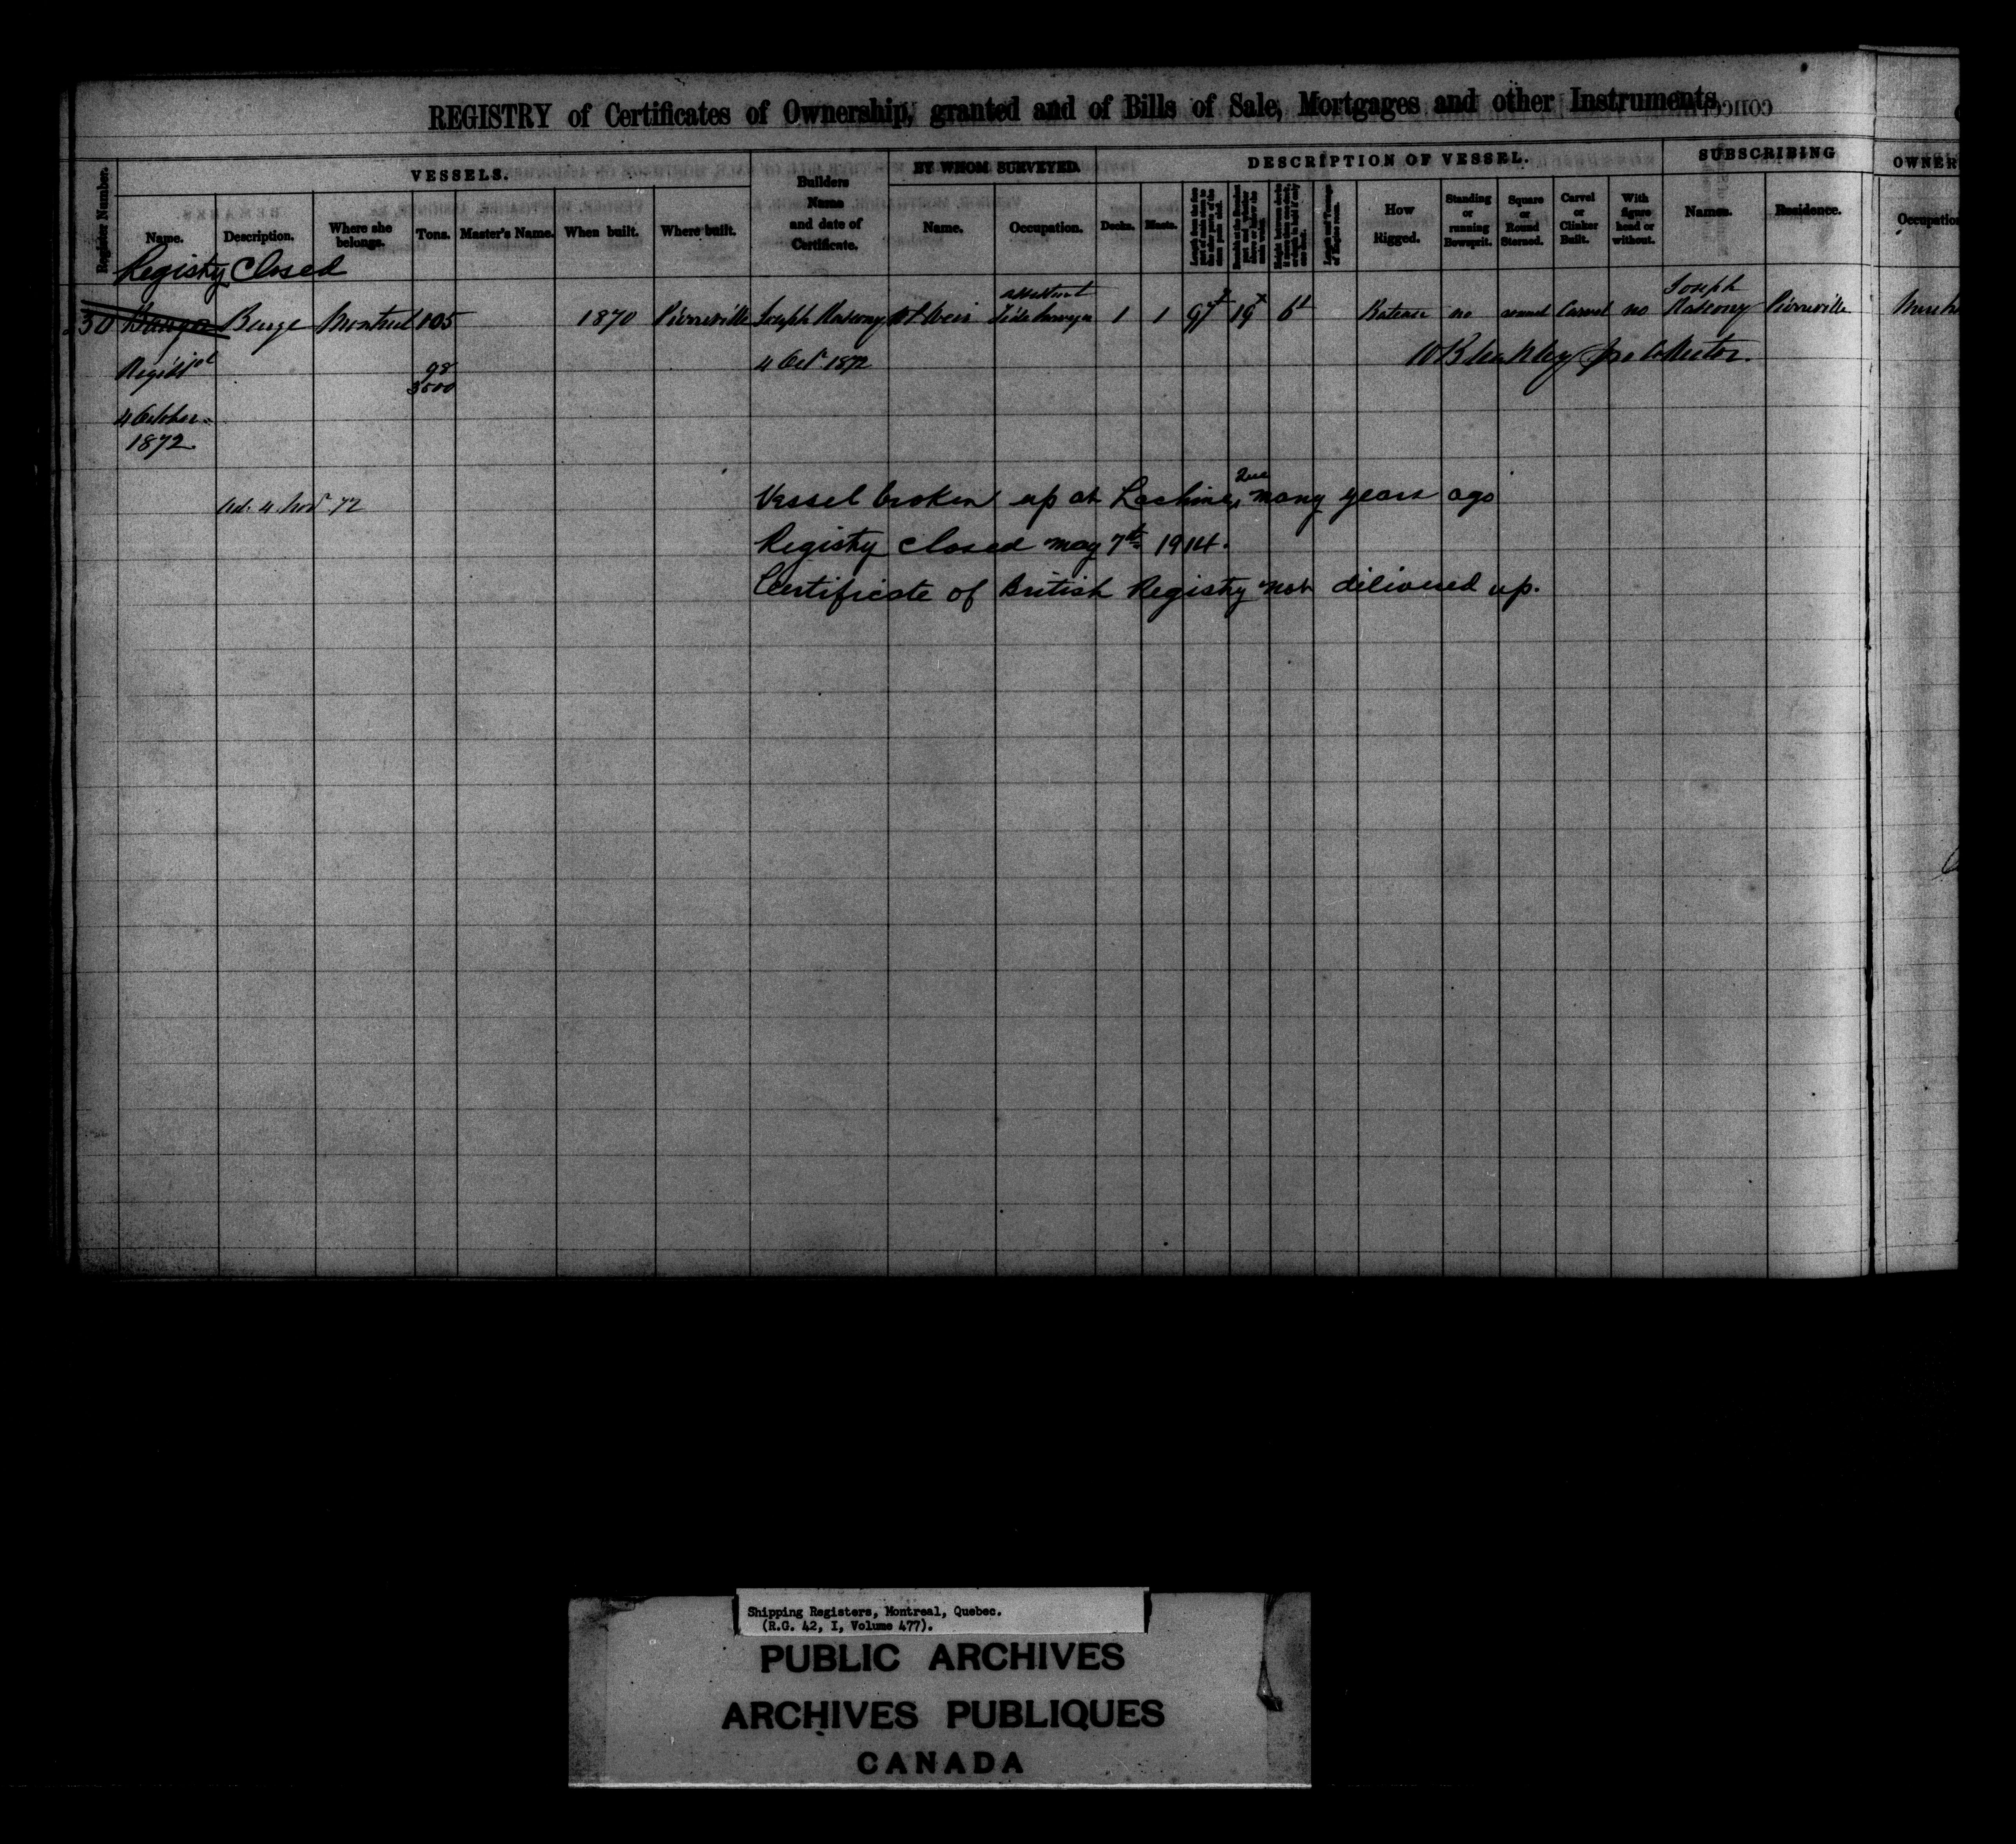 REGISTRY of Certificates of Ownership, granted and of Bills of Sale, Mortgages and other Instruments
VESSELS.
BY WHOM SURVEYED.
DESCRIPTION OF VESSEL.
SUBSCRIBING
OWNER
Register Number.
Name.
Description.
Where she belongs.
Tons.
Master's Name.
When built.
Where built.
Builders Name and date of Certificate.
Name.
Occupation.
Decks.
Masts.
How Rigged.
Standing or running Bowsprit.
Square or Round Sterned.
Carvel or Clinker Built.
With figure head or without.
Names.
Residence.
Occupation
Registry Closed
30 Barge Montreal 105 1870 Pierreville Joseph assistant 1 1 97 19 6 no round Carvel no Joseph Pierreville
98
3500
4 Oct 1872
4 October
1872
4 Nov 72
Vessel broken up at Lachine, Que many years ago
Registry closed May 7th 1914.
Certificate of British Registry not delivered up.
Shipping Registers, Montreal, Quebec.
(R.G. 42, I, Volume 477).
PUBLIC ARCHIVES
ARCHIVES PUBLIQUES
CANADA